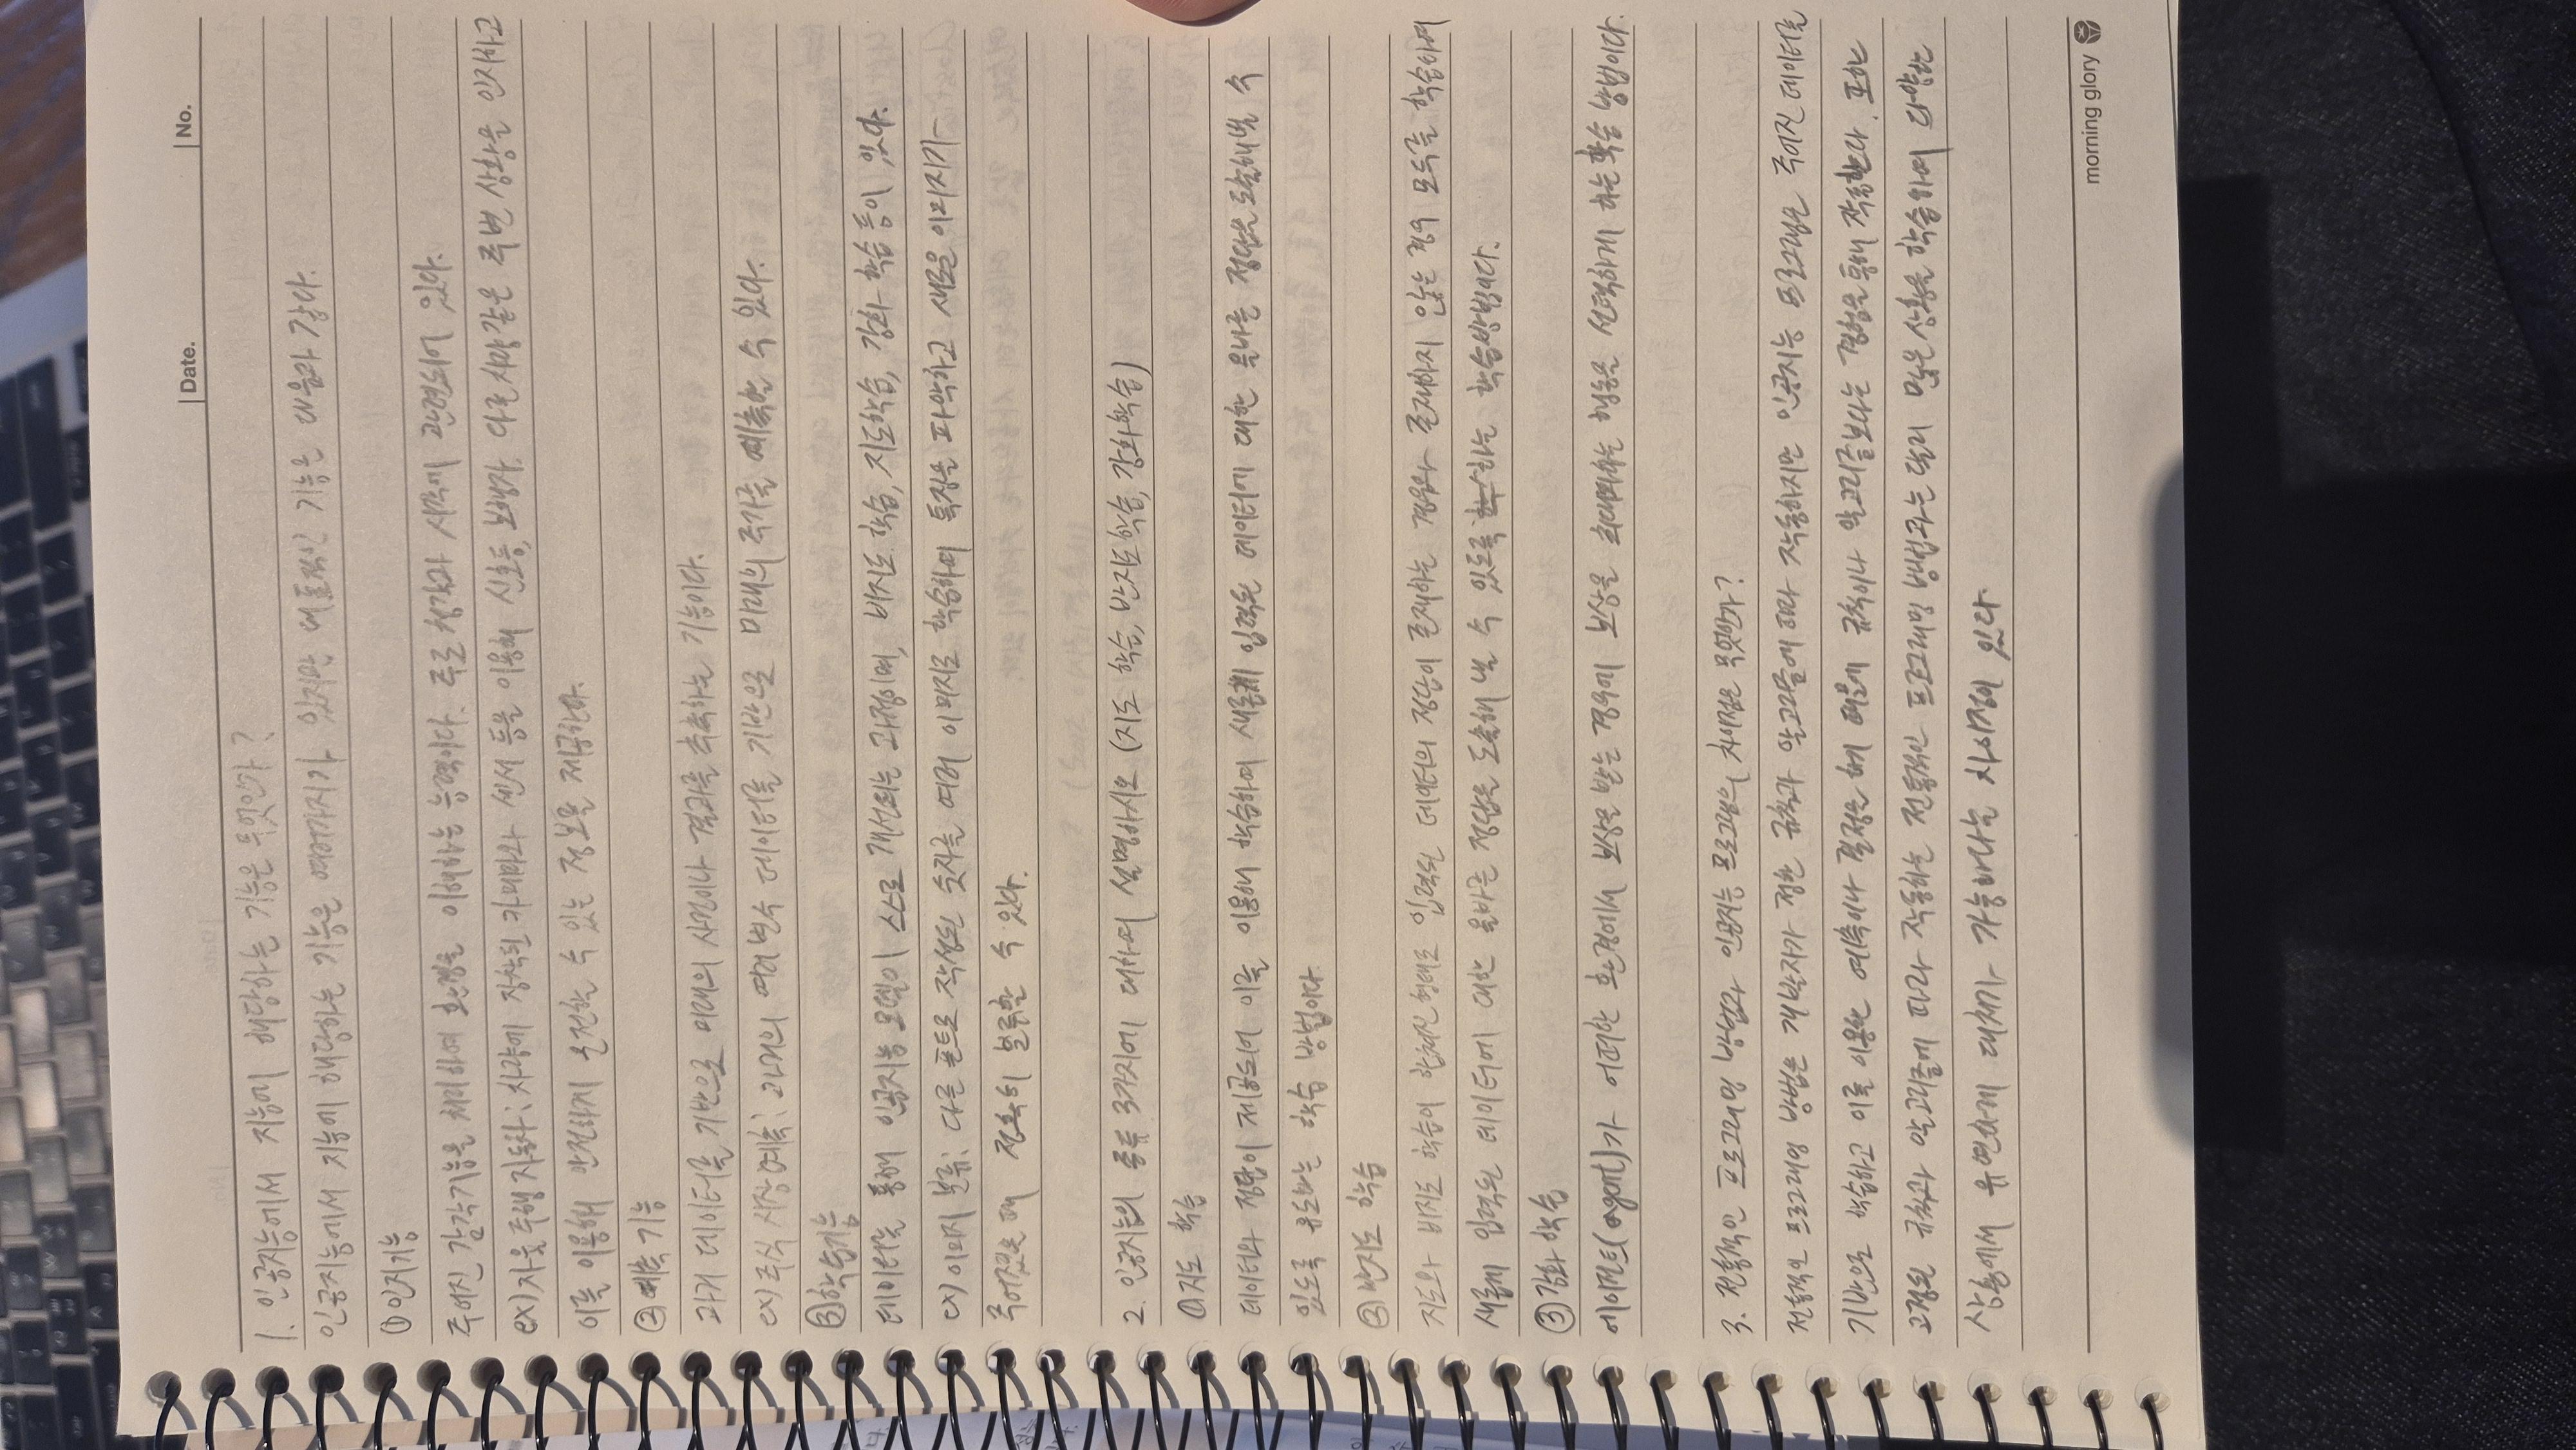 Date. No.
1. 인공지능에서 지능에 해당하는 기능은 무엇인가?
인공지능에서 지능에 해당하는 기능은 여러가지가 있지만 대표적인 기능은 다음과 같다.
① 인지기능
주어진 감각기능을 처리하여 환경을 이해하는 능력이다. 주로 청각과 시각에 관련되어 있다.
ex) 자율 주행 자동차: 차량에 장착된 카메라와 센서 등을 이용해 신호등, 보행자, 다른 차량 같은 주변 상황을 인지하고
이를 이용해 안전하게 운전할 수 있는 정보를 제공한다.
② 예측 기능
과거 데이터를 기반으로 미래의 사건이나 결과를 추측하는 기능이다.
ex) 주식 시장 예측: 과거의 여러 변수 데이터를 기반으로 미래의 주가를 예측할 수 있다.
③ 학습기능
데이터를 통해 인공지능 모델이 스스로 개선되는 과정이며, 비지도 학습, 지도학습, 강화 학습 등이 있다.
ex) 이미지 분류: 다른 폰트로 작성된 숫자를 여러 이미지로 학습하여 특징을 파악하고 새로운 이미지가
주어졌을 때 정확히 분류할 수 있다.
2. 인공지능의 종류 3가지에 대하여 설명하시오 (지도 학습, 반지도학습, 강화학습)
① 지도 학습
데이터와 정답이 제공되어 이를 이용해 학습하여 새롭게 입력된 데이터에 대한 올바른 정답을 도출해낼 수
있도록 유도하는 학습 방법이다.
② 반지도 학습
지도와 비지도 학습이 합쳐진 형태로 입력된 데이터의 정답이 존재하는 경우와 존재하지 않는 경우 모두를 학습하여
새롭게 입력된 데이터에 대한 올바른 정답을 도출해 낼 수 있도록 하는 학습방법이다.
③ 강화 학습
에이전트(agent)가 어떠한 환경에서 보상을 받는 경우에 보상을 최대화하는 행동을 선택하게 하는 학습 방법이다.
3. 전통적인 프로그래밍 방법과 인공지능 프로그램의 차이점은 무엇인가?
전통적인 프로그래밍 방법은 개발자가 정한 규칙과 알고리즘에 따라 작동하지만 인공지능 프로그램은 주어진 데이터를
기반으로 학습하고 이를 이용한 예측이나 결정을 하기 때문에 규칙이나 알고리즘보다는 경험을 통해 작동한다. 또한
고정된 규칙과 알고리즘에 따라 작동하는 전통적인 프로그래밍 방법과는 달리 많은 상황을 학습하여 다양한
상황에서 유연하게 대처가 가능하다는 차이점이 있다.
morning glory